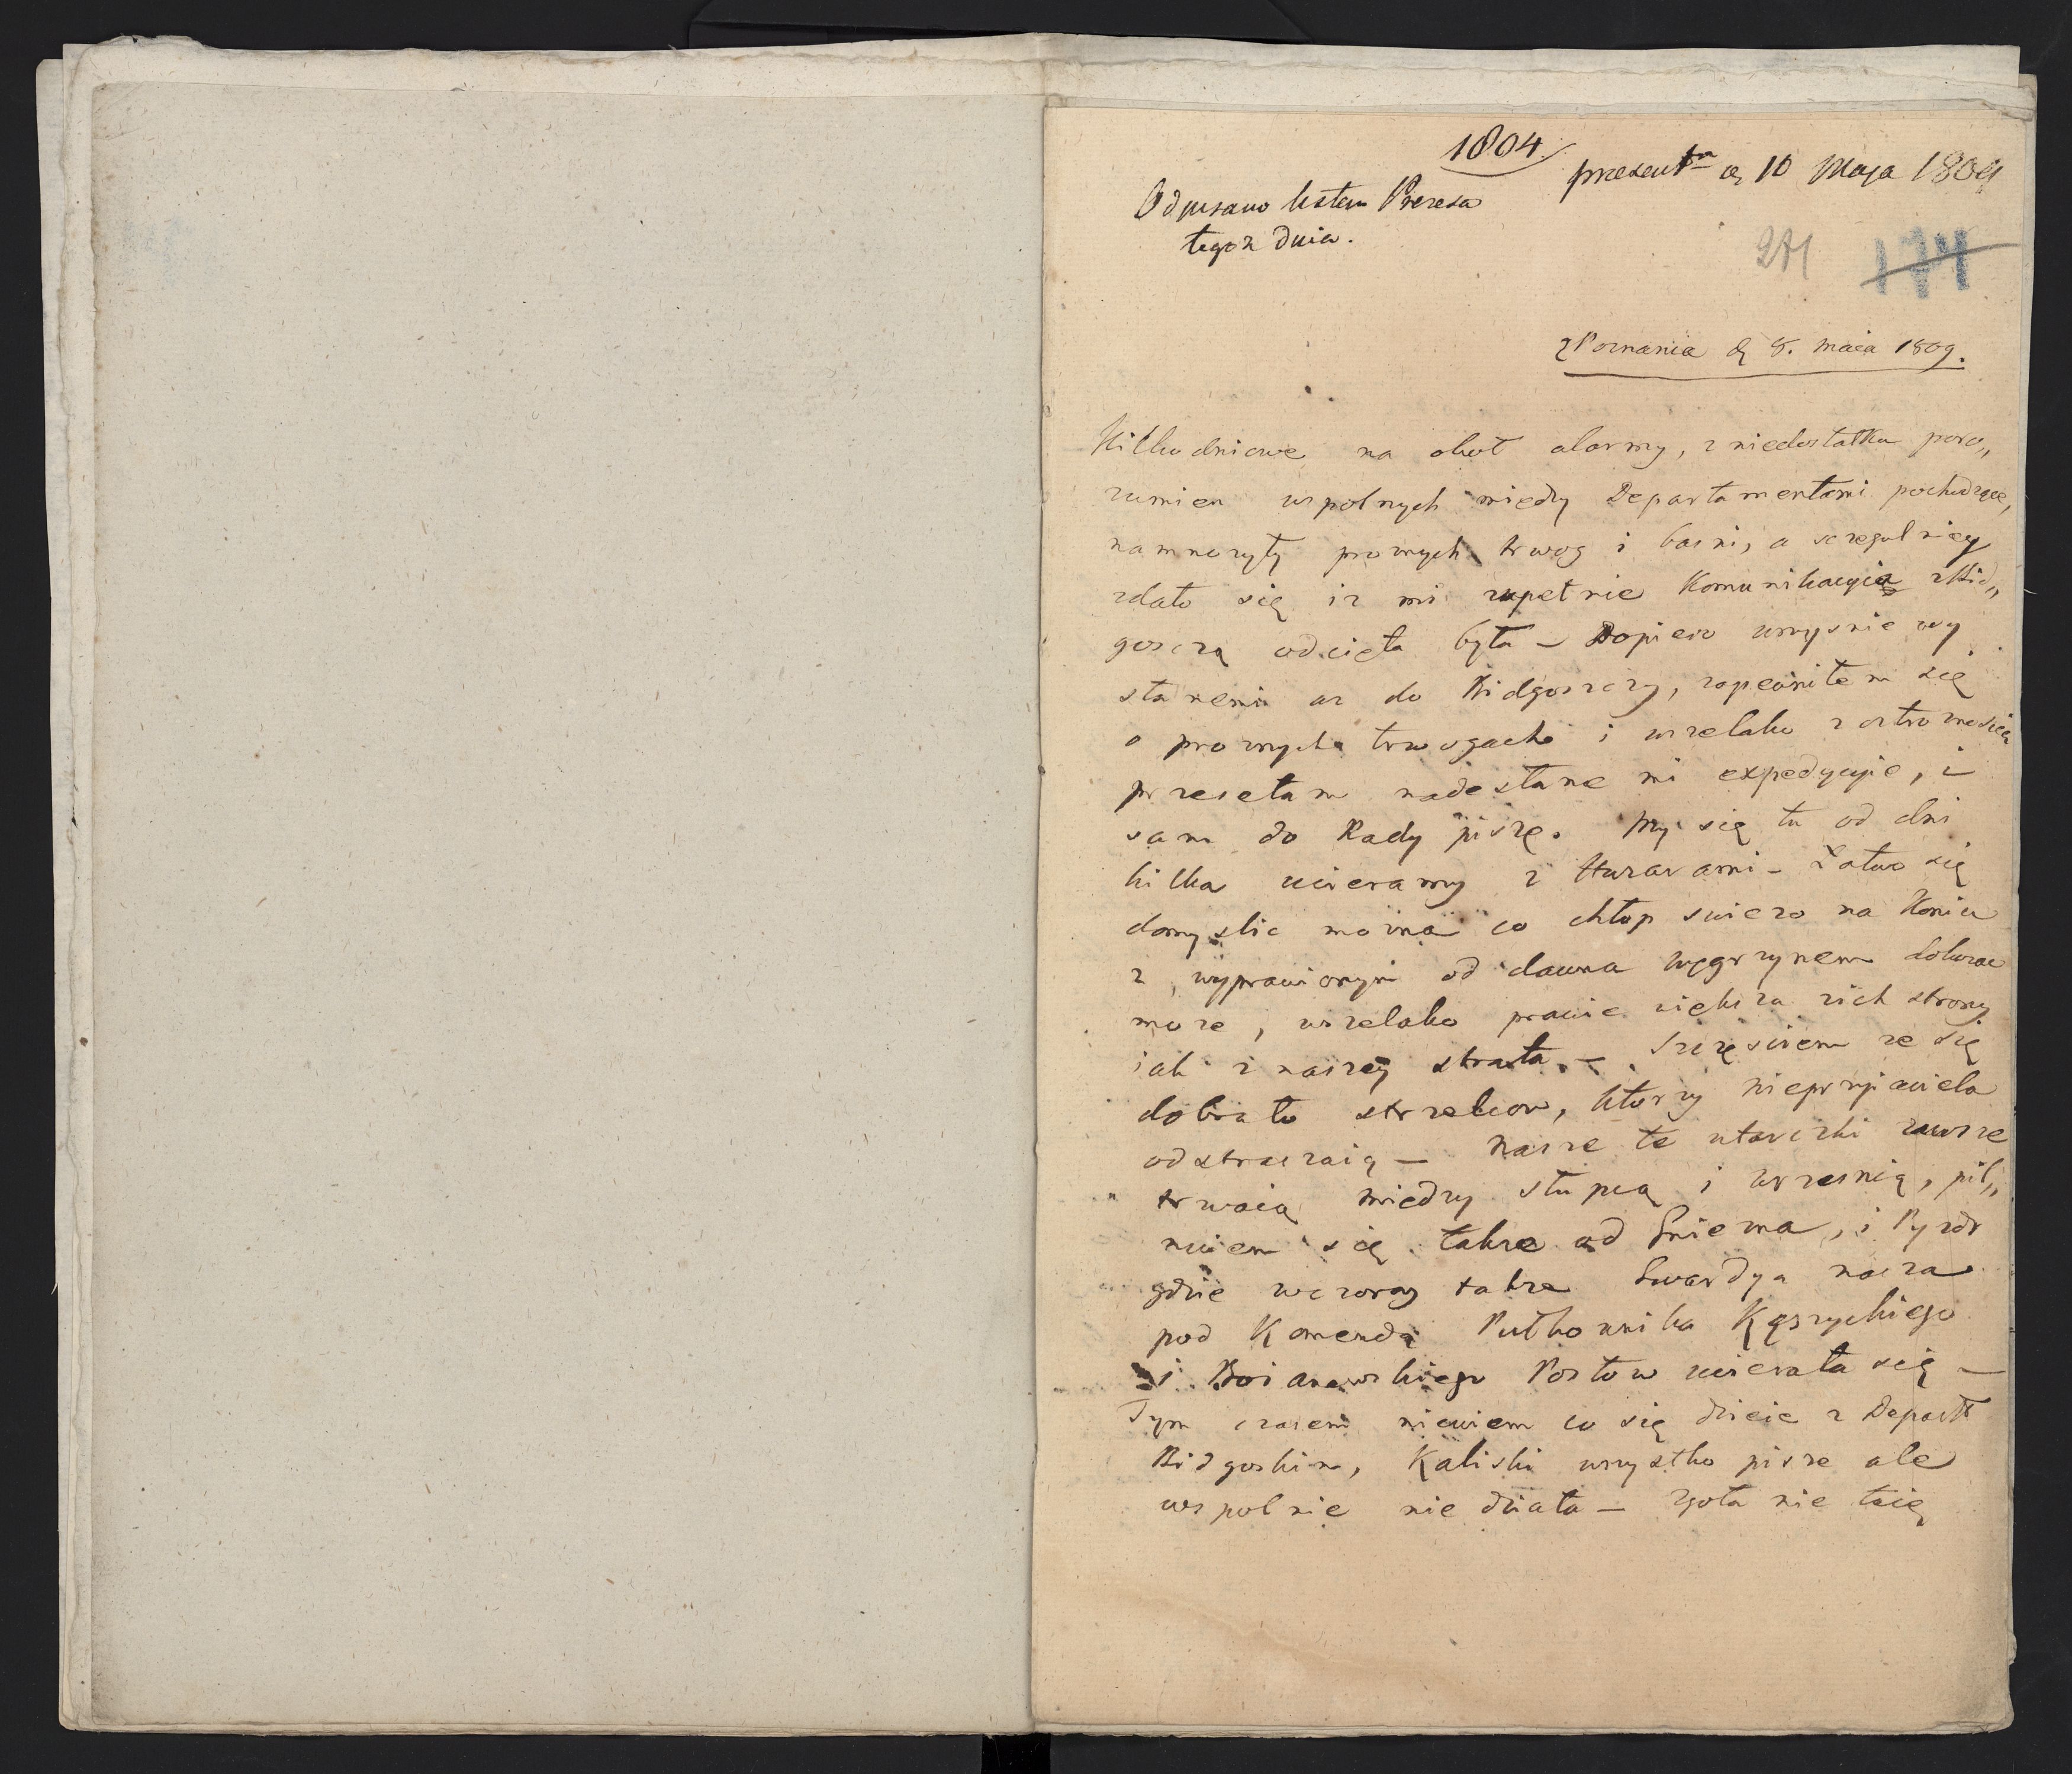 1804
Odpisano listem Prezesa
tegoż dnia.
present<sup>m</sup> d. 10 Maja 1809
271 174
z Poznania d. 8. maia 1809.
Kilkodniowe na około alarmy, z niedostatku poro„
zumien wspolnych między Departamentami pochodzące,
namnożyły proznych trwog i basni, a szczegulniey
zdało się iż mi zupełnie Komunikacyia z Bid„
goszczą odcięta była – Dopiero umyslnie wy
słanemi az do Bidgoszczy, zapewniłem się
o proznych trwogach i wszelako z ostroznością
przesełam nadesłane mi expedycyie, i
sam do Rady piszę. My się tu od dni
kilka ucieramy z Huzarami – Łatwo się
domyslic mozna co chłop swiezo na Koniu
z wyprawionym od dawna węgrzynem dokazac
moze, wszelako prawie większa z ich strony
iak z naszey strata. – Szczęściem ze się
dobrało strzelcow, ktorzy nieprzyiaciela
odstraszaią – Nasze te utarczki zawsze
trwaią miedzy Słupcą i Wrzesnią, pil„
nuiem się takze od Gniezna, i Pyzdr
gdzie wczoray takze Gwardya nasza
pod Komendą Pułkownika Kęszyckiego
i Boianowskiego Posłow ucierała się –
Tym czasem niewiem co się dzieie z Departt
Bidgoskim, Kaliski wszystko pisze ale
wspolnie nie działa – zgoła nie